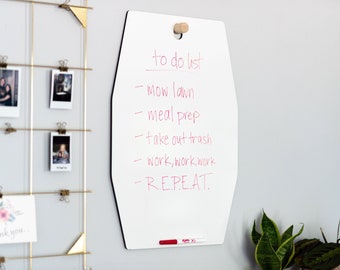 to do list
- mow lawn
- meal prep
- take out trash
- work, work, work
- R.E.P.E.A.T.